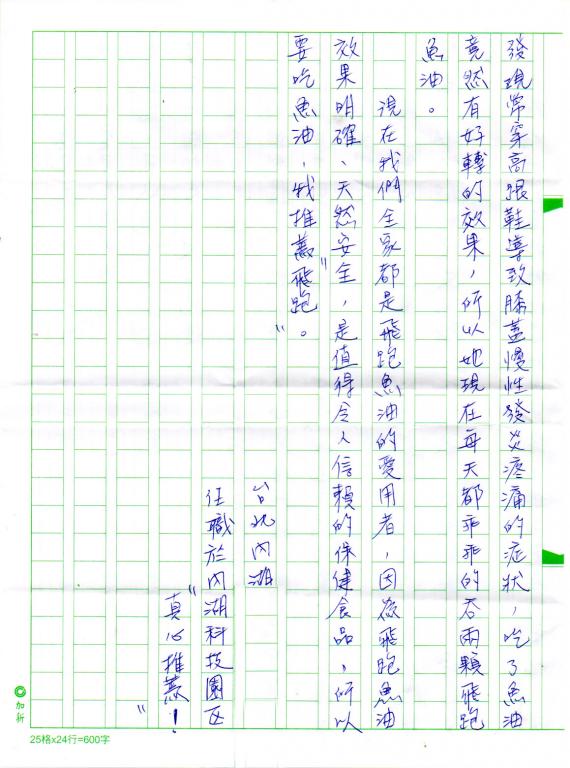 發現常穿高跟鞋導致膝蓋慢性發炎疼痛的症狀，吃了魚油
竟然有好轉的效果，所以她現在每天都乖乖的吞兩顆飛跑
魚油。
現在我們全家都是飛跑魚油的愛用者，因為飛跑魚油
效果明確、天然安全，是值得令人信賴的保健食品，所以
要吃魚油，我推薦〝飛跑〞。
台北內湖
任職於內湖科技園區
〝真心推薦！〞
加新
25格x24行=600字